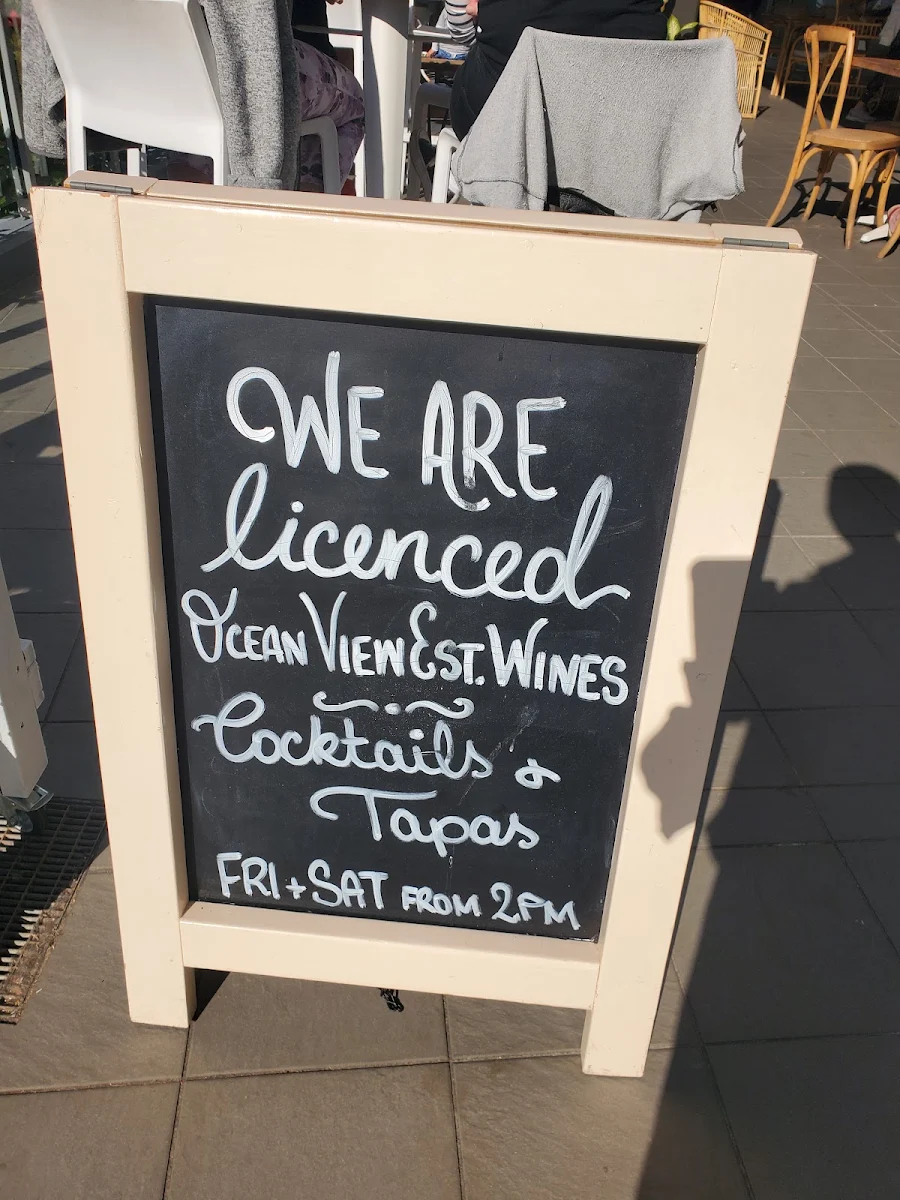 WE ARE
licenced
OCEAN VIEW EST. WINES
Cocktails &
Tapas
FRI + SAT FROM 2PM